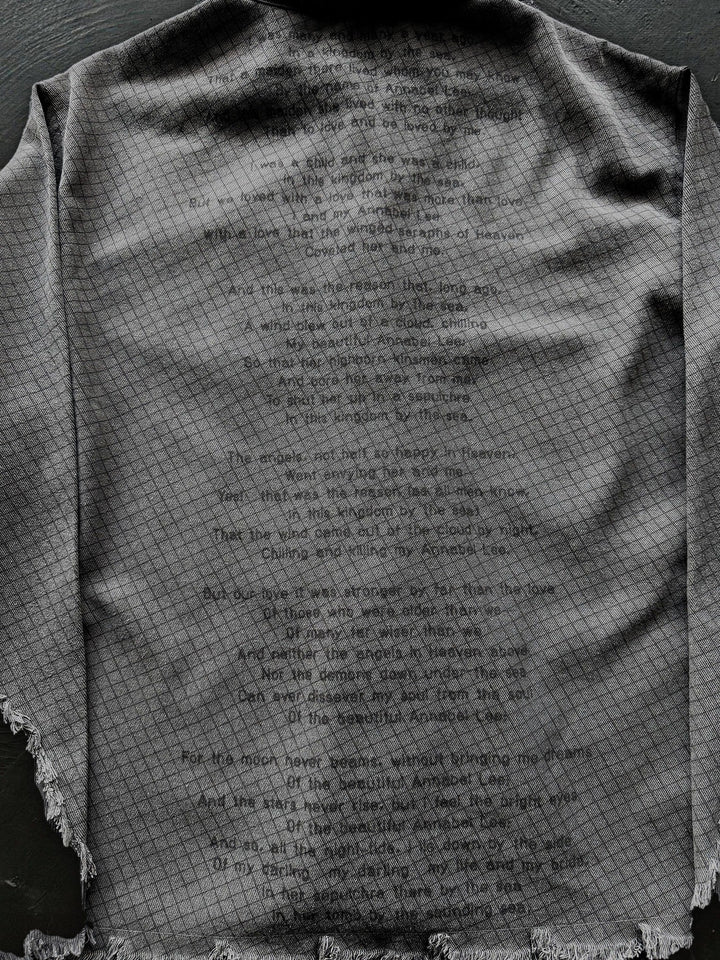 was many and many a year ago,
In a kingdom by the sea,
That a maiden there lived whom you may know
By the name of Annabel Lee;
And this maiden she lived with no other thought
Than to love and be loved by me.
I was a child and she was a child,
In this kingdom by the sea,
But we loved with a love that was more than love
I and my Annabel Lee
With a love that the winged seraphs of Heaven
Coveted her and me.
And this was the reason that, long ago,
In this kingdom by the sea,
A wind blew out of a cloud, chilling
My beautiful Annabel Lee;
So that her highborn kinsmen came
And bore her away from me,
To shut her up in a sepulchre
In this kingdom by the sea.
The angels, not half so happy in Heaven,
Went envying her and me
Yes! that was the reason (as all men know,
In this kingdom by the sea)
That the wind came out of the cloud by night,
Chilling and killing my Annabel Lee.
But our love it was stronger by far than the love
Of those who were older than we
Of many far wiser than we
And neither the angels in Heaven above
Nor the demons down under the sea
Can ever dissever my soul from the soul
Of the beautiful Annabel Lee;
For the moon never beams, without bringing me dreams
Of the beautiful Annabel Lee;
And the stars never rise, but I feel the bright eyes
Of the beautiful Annabel Lee;
And so, all the night-tide, I lie down by the side
Of my darling my darling my life and my bride,
In her sepulchre there by the sea
In her tomb by the sounding sea.